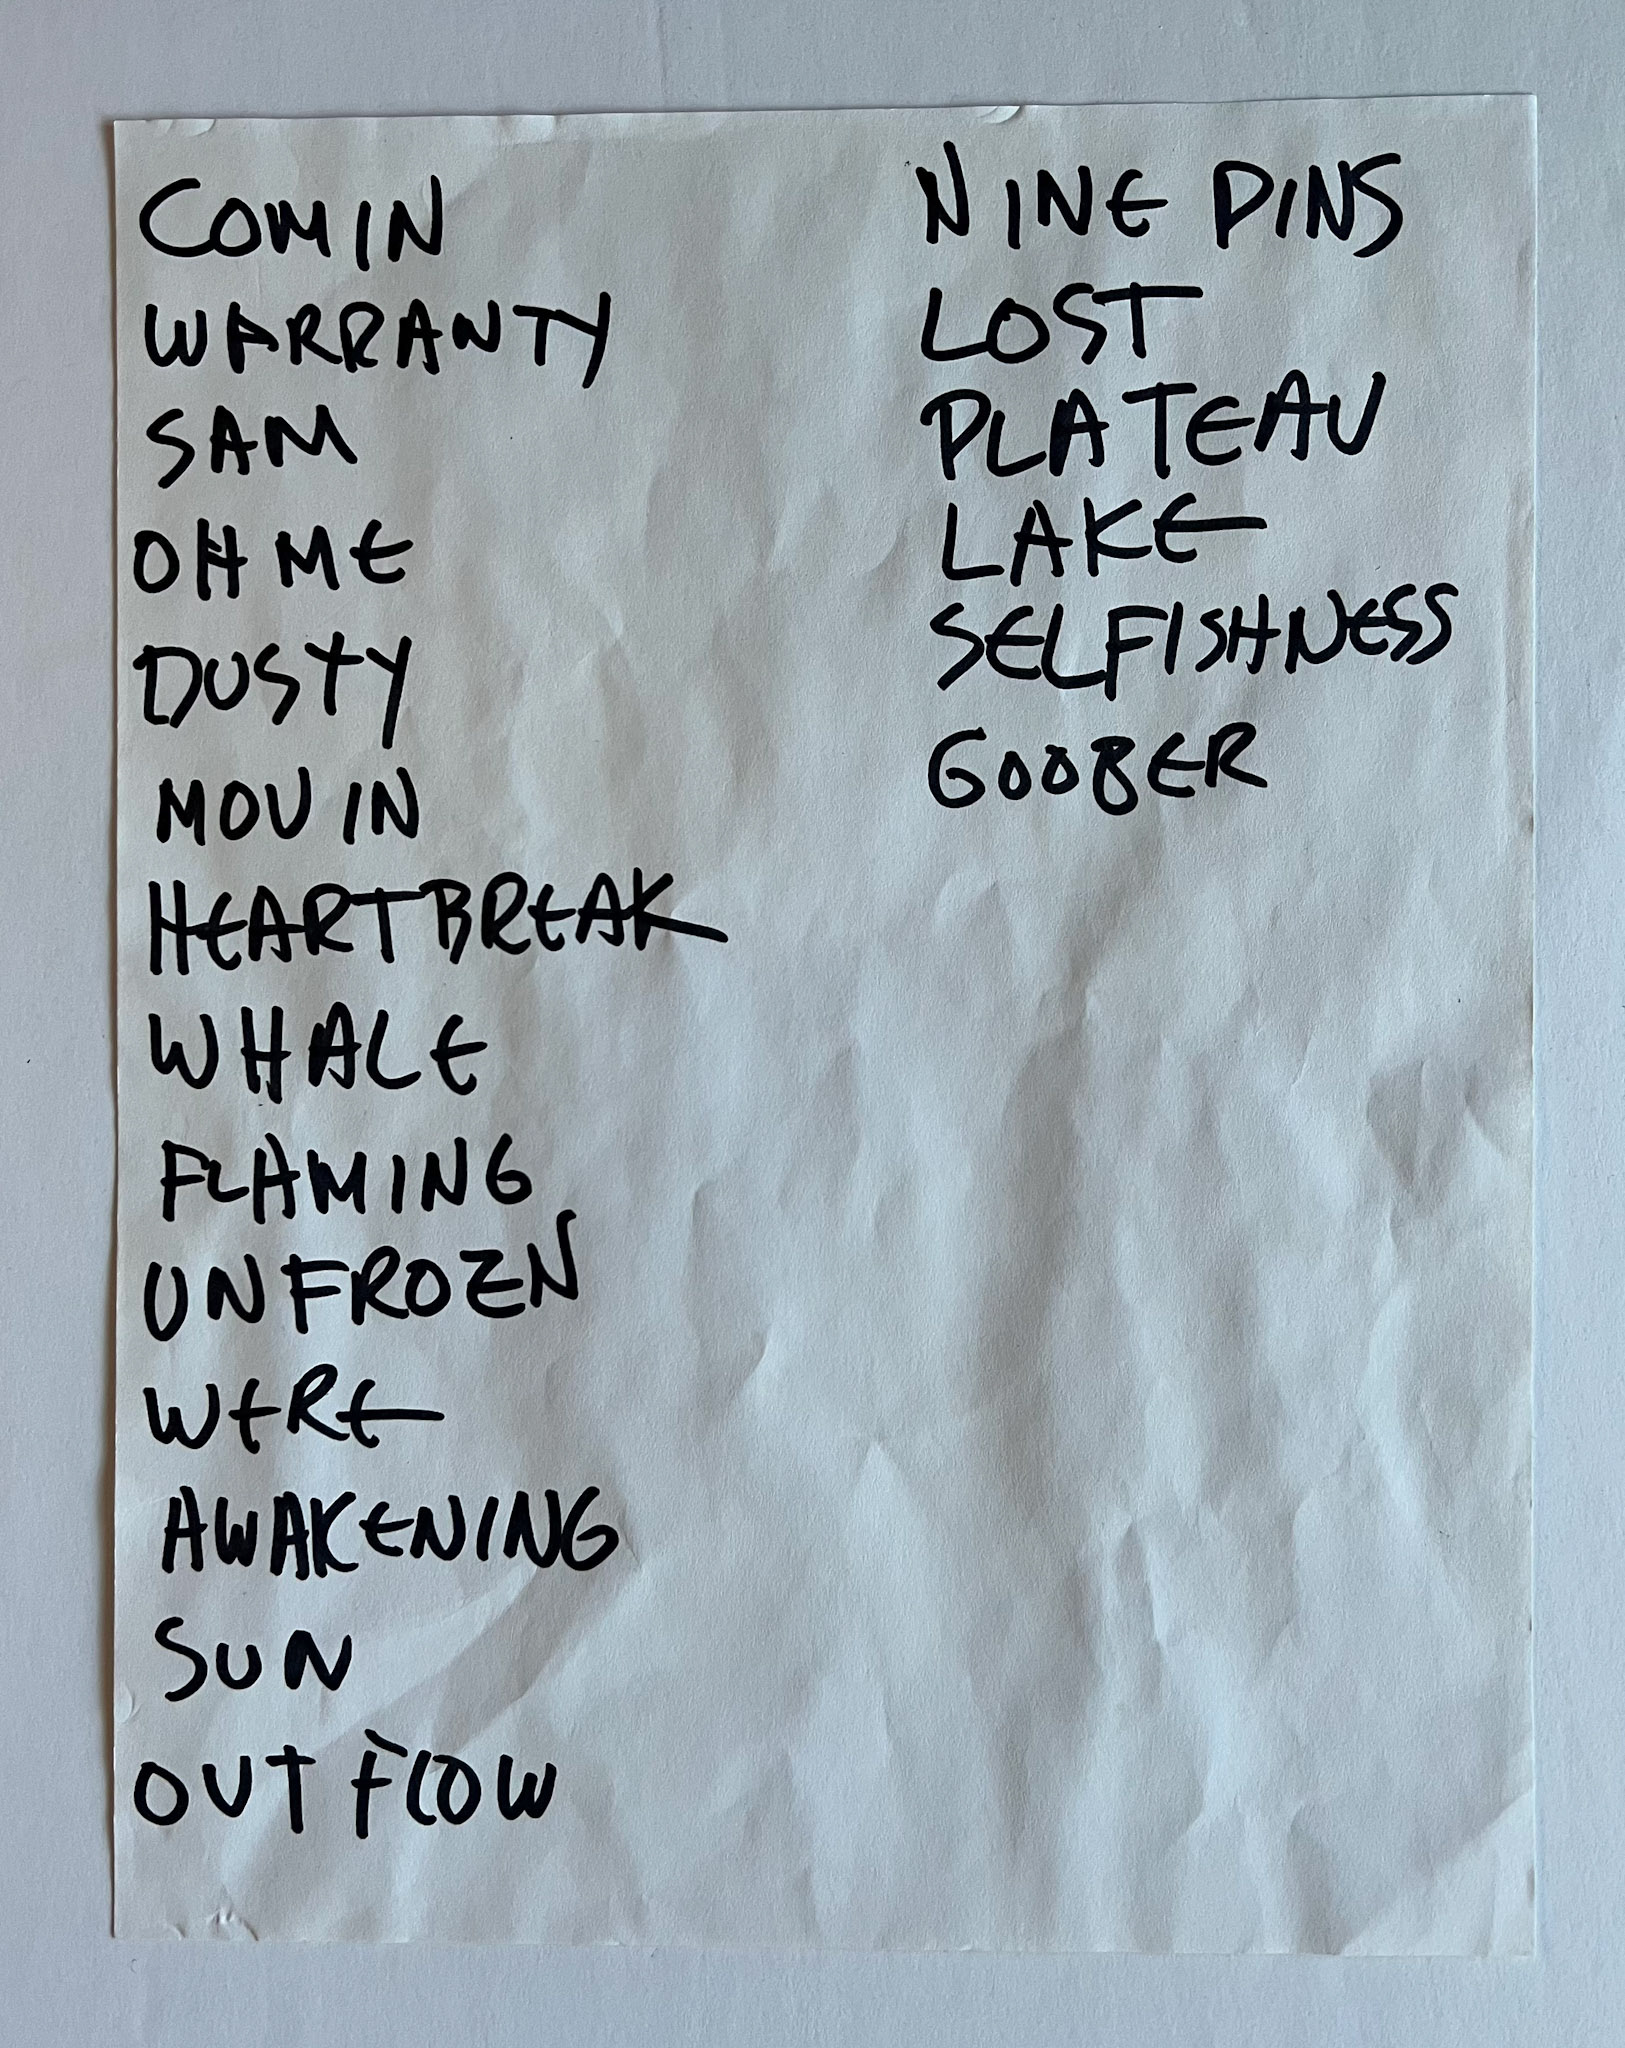 COMIN
WARRANTY
SAM
OH ME
DUSTY
MOVIN
HEARTBREAK
WHALE
FLAMING
UNFROZEN
WERE
AWAKENING
SUN
OUT FLOW
NINE PINS
LOST
PLATEAU
LAKE
SELFISHNESS
GOOBER